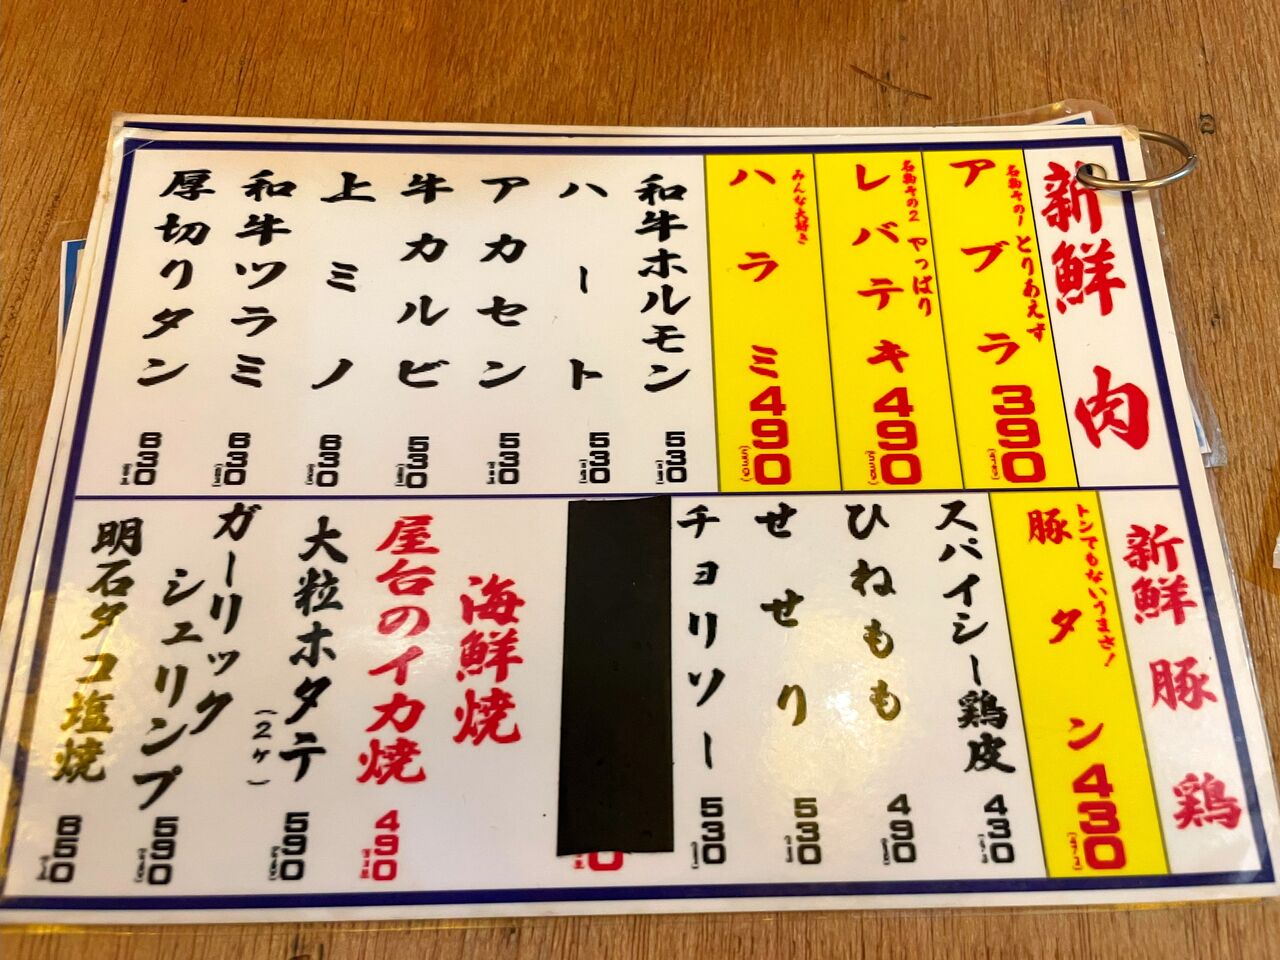 新鮮 肉
名物その1 とりあえず
アブラ 390
名物その2 やっぱり
レバテキ 490
みんな大好き
ハラミ 490
和牛ホルモン 530
ハート 530
アカセン 530
牛カルビ 530
上ミノ
和牛ツラミ
厚切りタン
新鮮 豚 鶏
トンでもないうまさ!
豚タン 430
スパイシー鶏皮 430
ひねもも 490
せせり 530
チョリソー 530
海鮮焼
屋台のイカ焼 490
大粒ホタテ
(2ヶ)
ガーリック
シュリンプ
明石タコ塩焼